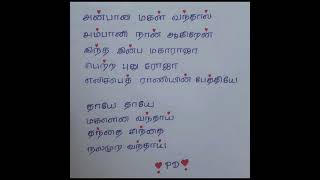 அன்பான மகள் வந்தால்
அம்பானி நான் ஆகிறேன்
இந்த இன்ப மகாராஜா
பெற்ற புது ரோஜா
எலிசபெத் ராணியின் பேத்தியே!
தாயே தாயே
மகளென வந்தாய்
தந்தை சிந்தை
நலமுற வந்தாய்
PD